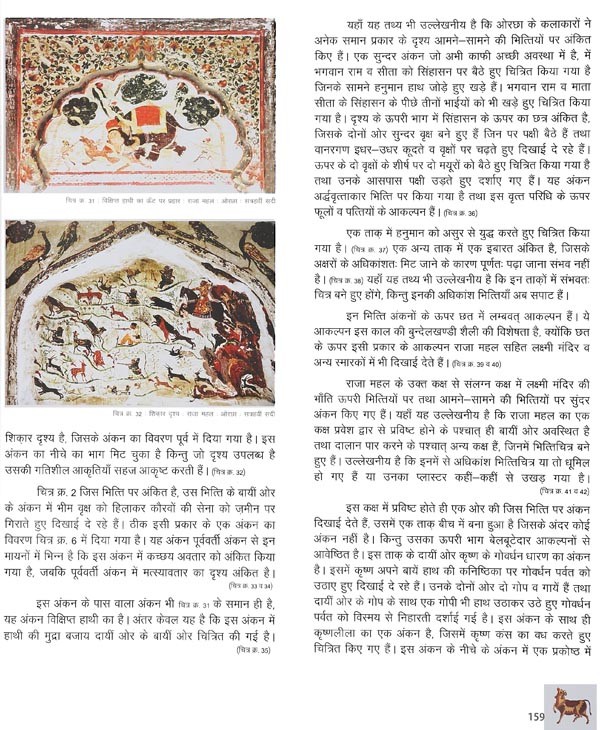 चित्र क्र. 31 : विक्षिप्त हाथी का ऊँट पर प्रहार : राजा महल : ओरछा : सत्रहवीं सदी
चित्र क्र. 32 : शिकार दृश्य : राजा महल : ओरछा : सत्रहवीं सदी
शिकार दृश्य है, जिसके अंकन का विवरण पूर्व में दिया गया है। इस
अंकन का नीचे का भाग मिट चुका है किन्तु जो दृश्य उपलब्ध है
उसकी गतिशील आकृतियाँ सहज आकृष्ट करती हैं। (चित्र क्र. 32)
चित्र क्र. 2 जिस भित्ति पर अंकित है, उस भित्ति के बायीं ओर
के अंकन में भीम वृक्ष को हिलाकर कौरवों की सेना को ज़मीन पर
गिराते हुए दिखाई दे रहे हैं। ठीक इसी प्रकार के एक अंकन का
विवरण चित्र क्र. 6 में दिया गया है। यह अंकन पूर्ववर्ती अंकन से इन
मायनों में भिन्न है कि इस अंकन में कच्छय अवतार को अंकित किया
गया है, जबकि पूर्ववर्ती अंकन में मत्स्यावतार का दृश्य अंकित है।
(चित्र क्र. 33 व 34)
इस अंकन के पास वाला अंकन भी चित्र क्र. 31 के समान ही है,
यह अंकन विक्षिप्त हाथी का है। अंतर केवल यह है कि इस अंकन में
हाथी की मुद्रा बजाय दायीं ओर के बायीं ओर चित्रित की गई है।
(चित्र क्र. 35)
यहाँ यह तथ्य भी उल्लेखनीय है कि ओरछा के कलाकारों ने
अनेक समान प्रकार के दृश्य आमने–सामने की भित्तियों पर अंकित
किए हैं। एक सुन्दर अंकन जो अभी काफी अच्छी अवस्था में है, में
भगवान राम व सीता को सिंहासन पर बैठे हुए चित्रित किया गया है
जिनके सामने हनुमान हाथ जोड़े हुए खड़े हैं। भगवान राम व माता
सीता के सिंहासन के पीछे तीनों भाईयों को भी खड़े हुए चित्रित किया
गया है। दृश्य के ऊपरी भाग में सिंहासन के ऊपर का छत्र अंकित है,
जिसके दोनों ओर सुन्दर वृक्ष बने हुए हैं जिन पर पक्षी बैठे हैं तथा
वानरगण इधर–उधर कूदते व वृक्षों पर चढ़ते हुए दिखाई दे रहे हैं।
ऊपर के दो वृक्षों के शीर्ष पर दो मयूरों को बैठे हुए चित्रित किया गया है
तथा उनके आसपास पक्षी उड़ते हुए दर्शाए गए हैं। यह अंकन
अर्द्धवृत्ताकार भित्ति पर किया गया है तथा इस वृत्त परिधि के ऊपर
फूलों व पत्तियों के आकल्पन हैं। (चित्र क्र. 36)
एक ताक़ में हनुमान को असुर से युद्ध करते हुए चित्रित किया
गया है। (चित्र क्र. 37) एक अन्य ताक़ में एक इबारत अंकित है, जिसके
अक्षरों के अधिकांशतः मिट जाने के कारण पूर्णतः पढ़ा जाना संभव नहीं
है। (चित्र क्र. 38) यहाँ यह तथ्य भी उल्लेखनीय है कि इन ताक़ों में संभवतः
चित्र बने हुए होंगे, किन्तु इनकी अधिकांश भित्तियाँ अब सपाट हैं।
इन भित्ति अंकनों के ऊपर छत में लम्बवत् आकल्पन हैं। ये
आकल्पन इस काल की बुन्देलखण्डी शैली की विशेषता है, क्योंकि छत
के ऊपर इसी प्रकार के आकल्पन राजा महल सहित लक्ष्मी मंदिर व
अन्य स्मारकों में भी दिखाई देते हैं। (चित्र क्र. 39 व 40)
राजा महल के उक्त कक्ष से संलग्न कक्ष में लक्ष्मी मंदिर की
भाँति ऊपरी भित्तियों पर तथा आमने–सामने की भित्तियों पर सुंदर
अंकन किए गए हैं। यहाँ यह उल्लेखनीय है कि राजा महल का एक
कक्ष प्रवेश द्वार से प्रविष्ट होने के पश्चात् ही बायीं ओर अवस्थित है
तथा दालान पार करने के पश्चात् अन्य कक्ष हैं, जिनमें भित्तिचित्र बने
हुए हैं। उल्लेखनीय है कि इनमें से अधिकांश भित्तिचित्र या तो धूमिल
हो गए हैं या उनका प्लास्टर कहीं–कहीं से उखड़ गया है।
(चित्र क्र. 41 व 42)
इस कक्ष में प्रविष्ट होते ही एक ओर की जिस भित्ति पर अंकन
दिखाई देते हैं, उसमें एक ताक़ बीच में बना हुआ है जिसके अंदर कोई
अंकन नहीं है। किन्तु उसका ऊपरी भाग बेलबूटेदार आकल्पनों से
आवेष्ठित है। इस ताक़ के दायीं ओर कृष्ण के गोवर्धन धारण का अंकन
है। इसमें कृष्ण अपने बायें हाथ की कनिष्ठिका पर गोवर्धन पर्वत को
उठाए हुए दिखाई दे रहे हैं। उनके दोनों ओर दो गोप व गायें हैं तथा
दायीं ओर के गोप के साथ एक गोपी भी हाथ उठाकर उठे हुए गोवर्धन
पर्वत को विस्मय से निहारती दर्शाई गई है। इस अंकन के साथ ही
कृष्णलीला का एक अंकन है, जिसमें कृष्ण कंस का वध करते हुए
चित्रित किए गए हैं। इस अंकन के नीचे के अंकन में एक प्रकोष्ठ में
159